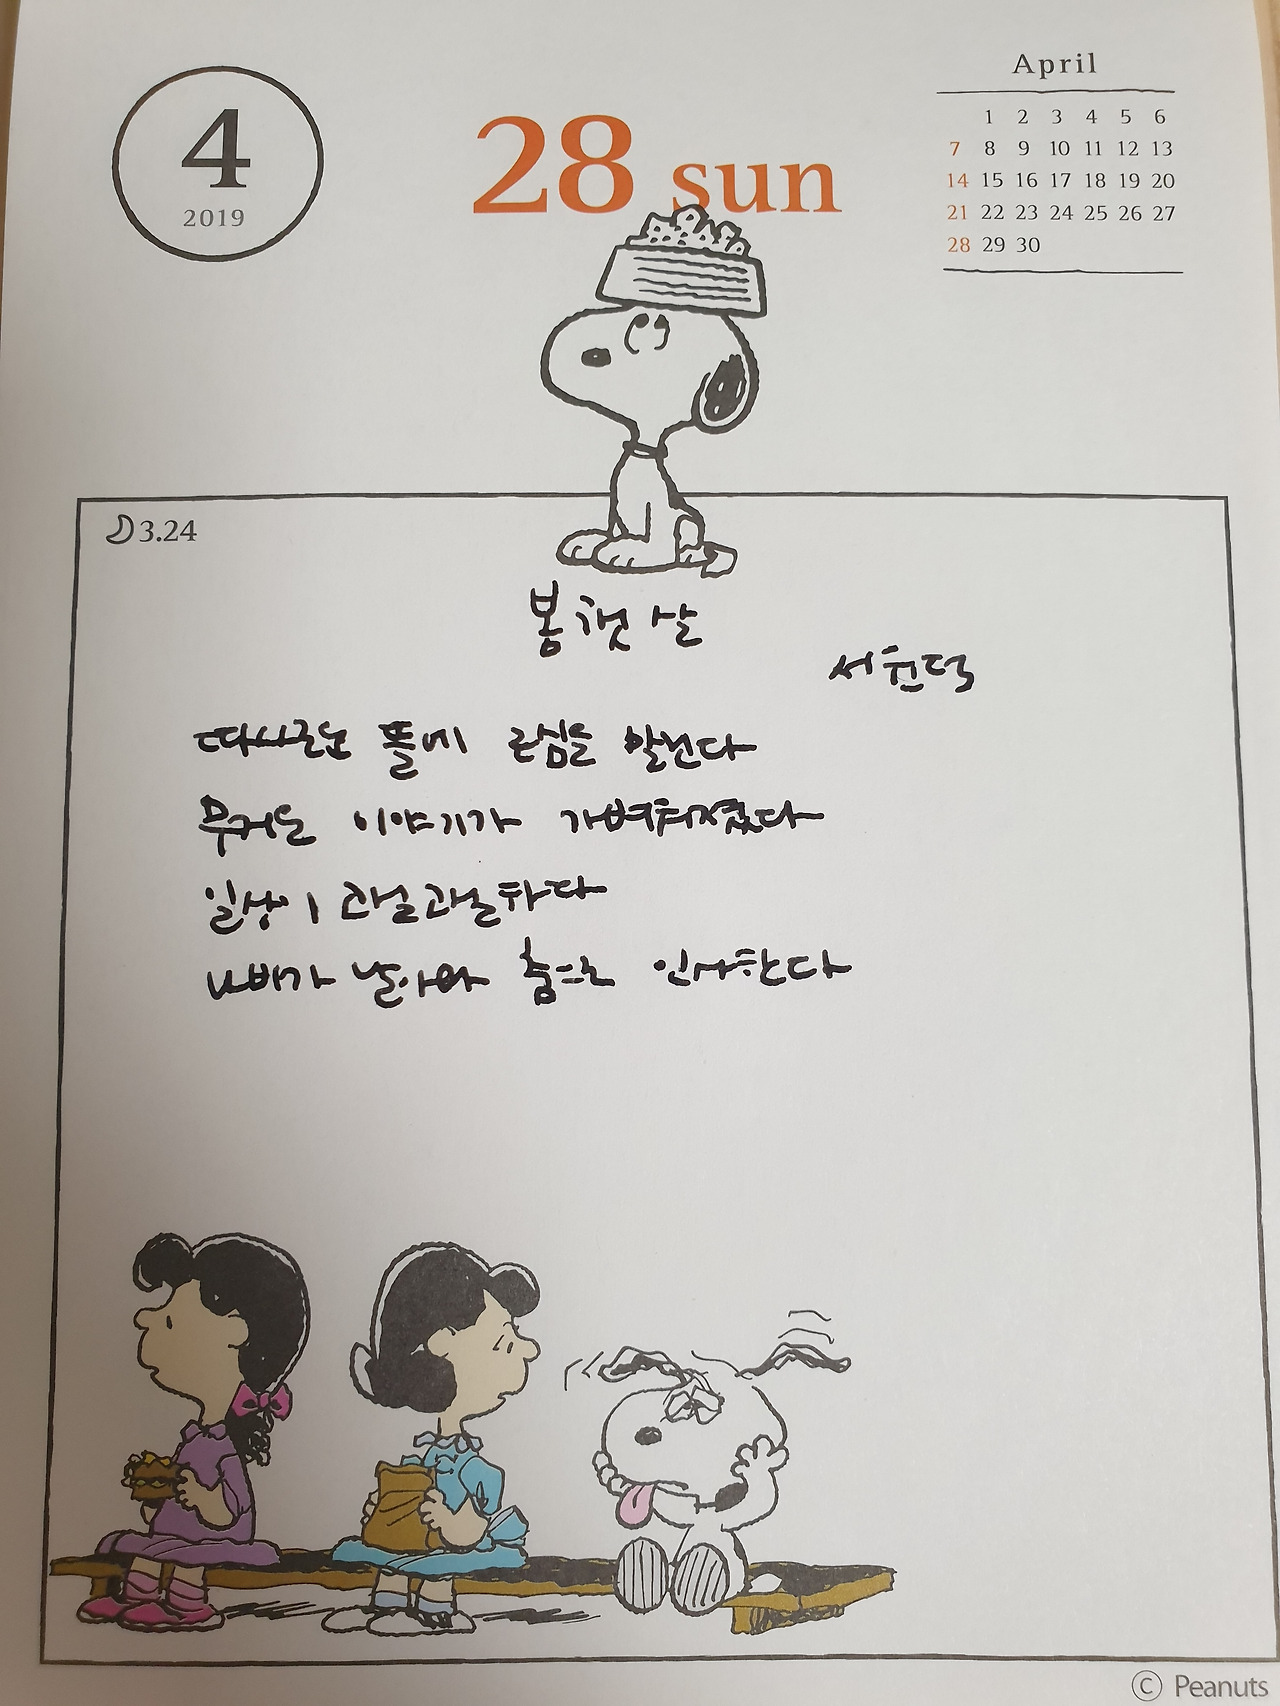 4
2019
28 sun
April
1 2 3 4 5 6
7 8 9 10 11 12 13
14 15 16 17 18 19 20
21 22 23 24 25 26 27
28 29 30
3.24
봄햇살
서윤덕
따사로운 뜰에 근심을 말린다
무거운 이야기가 가벼워졌다
일상이 고널고널하다
나비가 날아와 춤으로 인사한다
© Peanuts